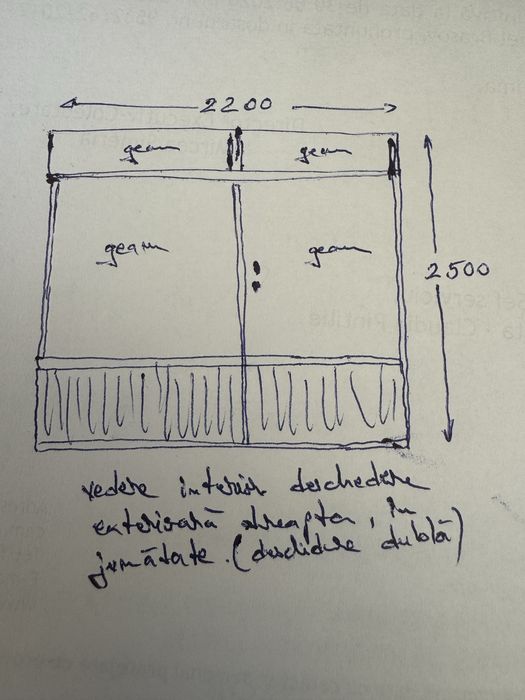 2200
geam geam
geam geam
2500
vedere interior deschedere
exterioară dreapta, în
jumătate. (deschidere dublă)